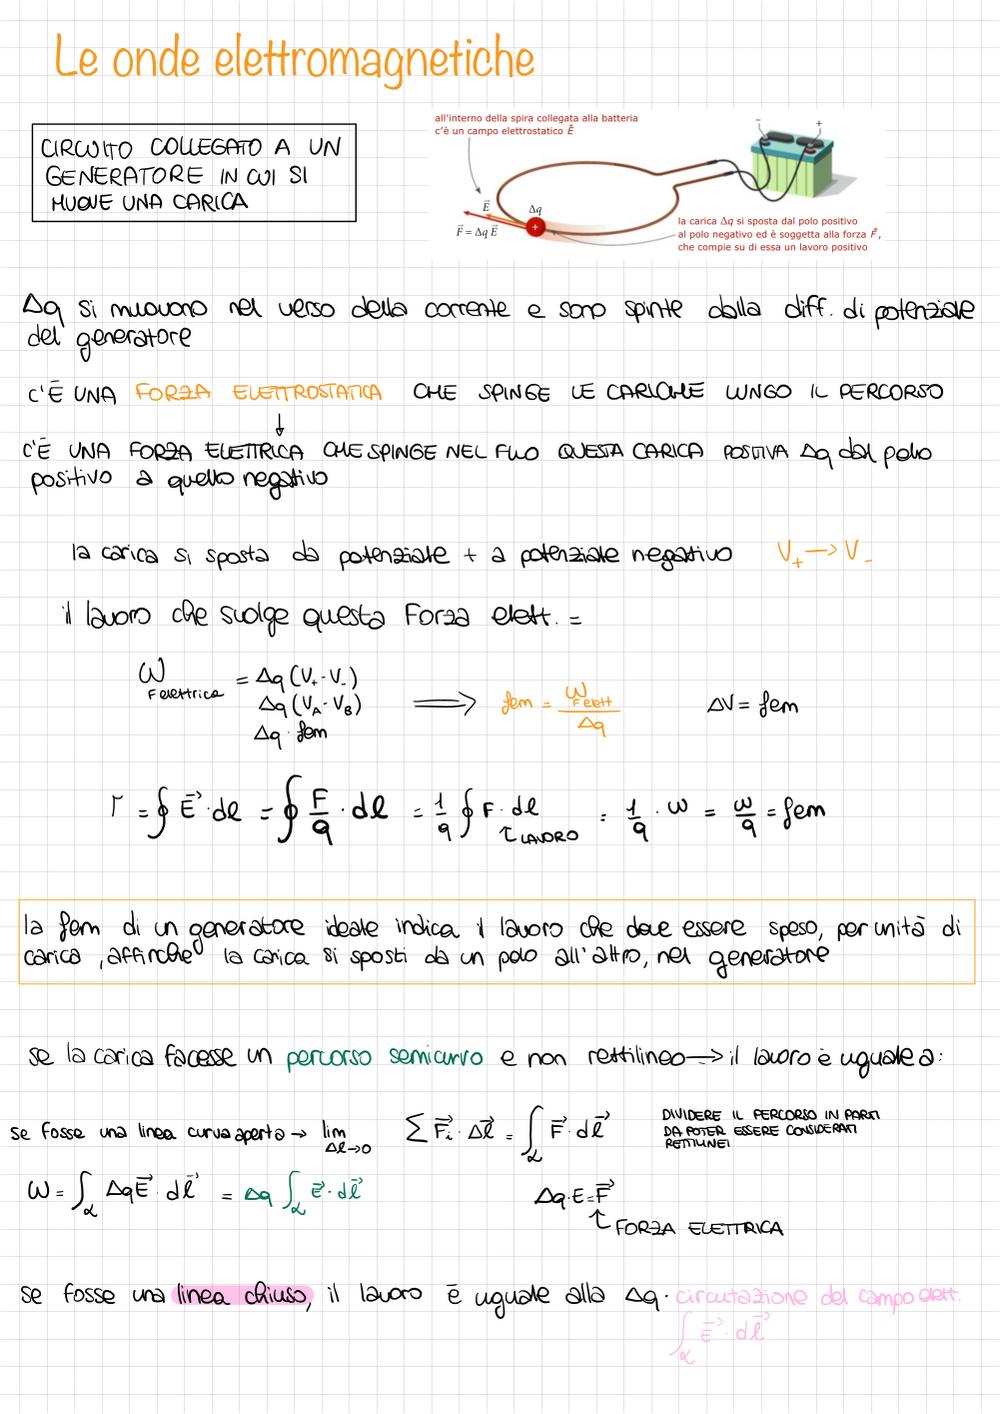 Le onde elettromagnetiche
CIRCUITO COLLEGATO A UN
GENERATORE IN CUI SI
MUOVE UNA CARICA
all'interno della spira collegata alla batteria
c'è un campo elettrostatico E⃗
− +
E⃗ Δq
F⃗ = Δq E⃗
+
la carica Δq si sposta dal polo positivo
al polo negativo ed è soggetta alla forza F⃗,
che compie su di essa un lavoro positivo
Δq si muovono nel verso della corrente e sono spinte dalla diff. di potenziale
del generatore
C'È UNA FORZA ELETTROSTATICA CHE SPINGE LE CARICHE LUNGO IL PERCORSO
↓
C'È UNA FORZA ELETTRICA CHE SPINGE NEL FILO QUESTA CARICA POSITIVA Δq dal polo
positivo a quello negativo
la carica si sposta da potenziale + a potenziale negativo V₊ → V₋
il lavoro che svolge questa Forza elett. =
W F elettrica = Δq (V₊ - V₋)
Δq (V_A - V_B) ⟹ fem = W F elett / Δq ΔV = fem
Δq · fem
Γ = ∮ E⃗ · dl = ∮ F/q · dl = 1/q ∮ F · dl = 1/q · W = W/q = fem
↑ LAVORO
la fem di un generatore ideale indica il lavoro che deve essere speso, per unità di
carica, affinche la carica si sposti da un polo all'altro, nel generatore
se la carica facesse un percorso semicurvo e non rettilineo → il lavoro è uguale a:
se fosse una linea curva aperta → lim Δl→0 Σ F⃗ᵢ · Δl⃗ = ∫_α F⃗ · dl⃗
DIVIDERE IL PERCORSO IN PARTI
DA POTER ESSERE CONSIDERATI
RETTILINEI
W = ∫_α ΔqE⃗ · dl⃗ = Δq ∫_α E⃗ · dl⃗ Δq·E = F⃗
↑ FORZA ELETTRICA
se fosse una linea chiuso, il lavoro è uguale alla Δq · circuitazione del campo elett.
∫_α E⃗ · dl⃗